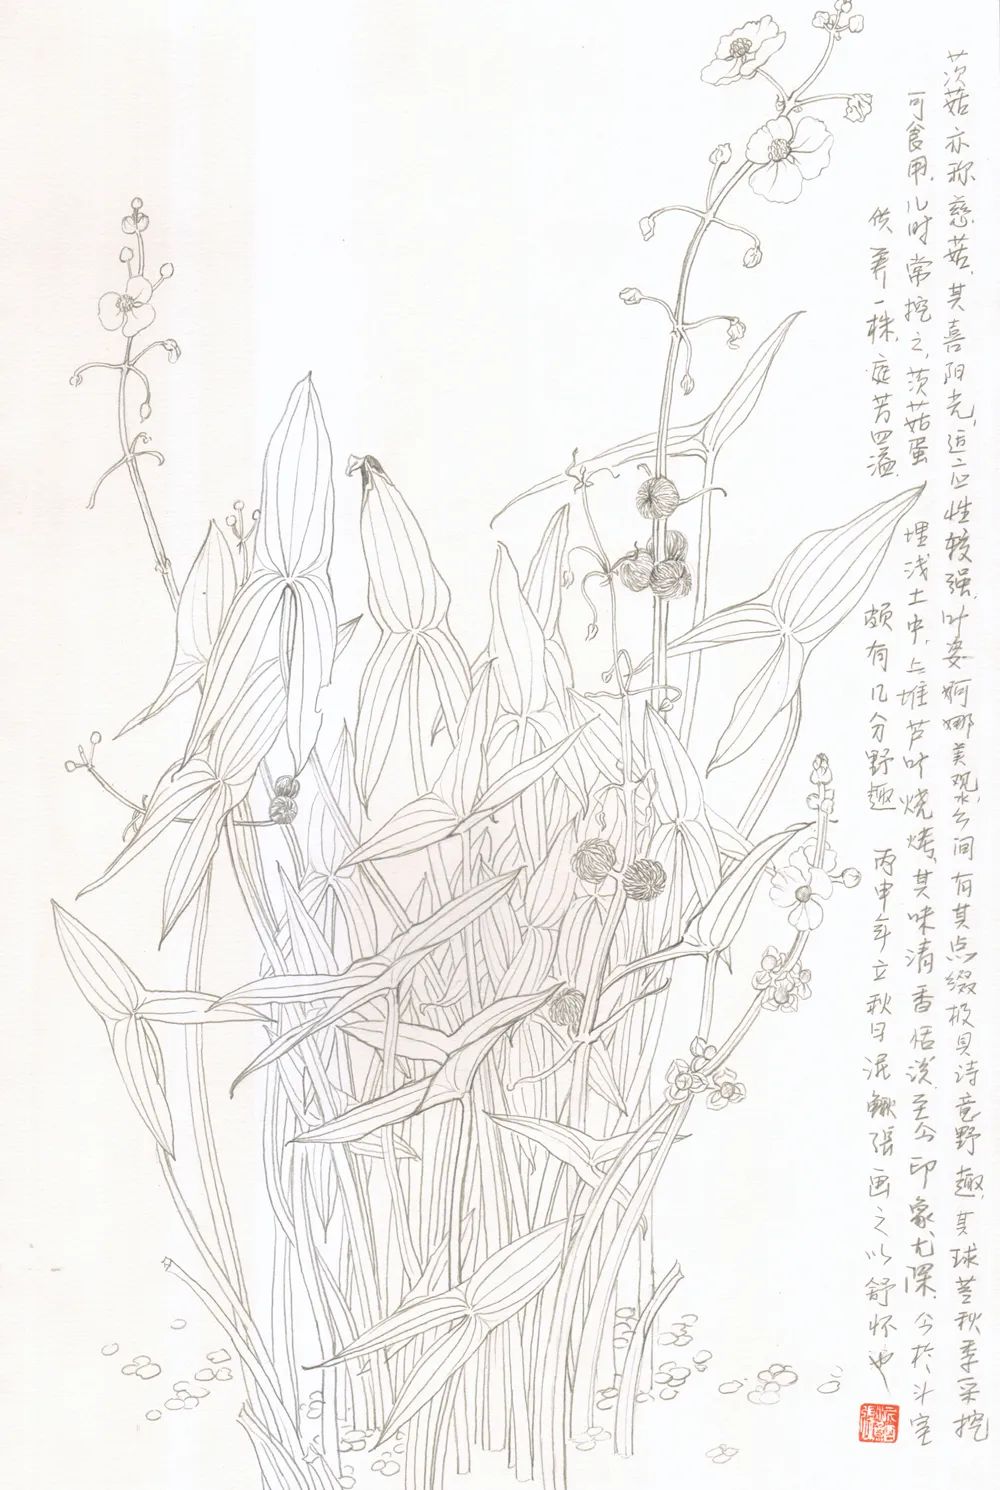 茨菇亦称慈菇，其喜阳光，适应性较强，叶姿婀娜美观，水乡间有其点缀极具诗意野趣，其球茎秋季采挖
可食用，儿时常挖之，茨菇蛋埋浅土中，上堆芦叶烧烤，其味清香恬淡，至今印象尤深，今於斗室
供养一株，庭芳四溢，颇有几分野趣 丙申年立秋日泥鳅張画之以舒怀也